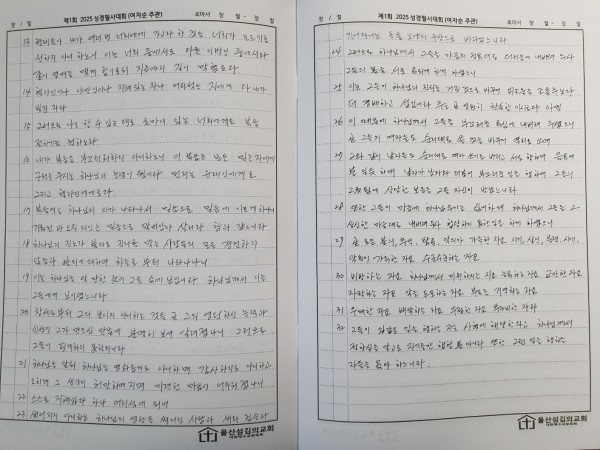 장 / 절
제1회 2025 성경필사대회 (여자순 주관)
로마서 장 월 - 장 월
13 형제들아 내가 여러 번 너희에게 가고자 한 것을 너희가 모르기를
원하지 아니하노니 이는 너희 중에서도 다른 이방인 중에서와
같이 열매를 맺게 하려 함이로되 지금까지 길이 막혔도다
14 헬라인이나 야만인이나 지혜 있는 자나 어리석은 자에게 다 내가
빚진 자라
15 그러므로 나는 할 수 있는 대로 로마에 있는 너희에게도 복음
전하기를 원하노라
16 내가 복음을 부끄러워하지 아니하노니 이 복음은 모든 믿는 자에게
구원을 주시는 하나님의 능력이 됨이라 먼저는 유대인에게요
그리고 헬라인에게로다
17 복음에는 하나님의 의가 나타나서 믿음으로 믿음에 이르게 하나니
기록된 바 오직 의인은 믿음으로 말미암아 살리라 함과 같으니라
18 하나님의 진노가 불의로 진리를 막는 사람들의 모든 경건하지
않음과 불의에 대하여 하늘로부터 나타나나니
19 이는 하나님을 알 만한 것이 그들 속에 보임이라 하나님께서 이를
그들에게 보이셨느니라
20 창세로부터 그의 보이지 아니하는 것들 곧 그의 영원하신 능력과
신성이 그가 만드신 만물에 분명히 보여 알려졌나니 그러므로
그들이 핑계하지 못할지니라
21 하나님을 알되 하나님을 영화롭게도 아니하며 감사하지도 아니하고
오히려 그 생각이 허망하여지며 미련한 마음이 어두워졌나니
22 스스로 지혜 있다 하나 어리석게 되어
23 썩어지지 아니하는 하나님의 영광을 썩어질 사람과 새와 짐승과
울산섬김의교회
장 / 절
제1회 2025 성경필사대회 (여자순 주관)
로마서 장 월 - 장 월
기어다니는 동물 모양의 우상으로 바꾸었느니라
24 그러므로 하나님께서 그들을 마음의 정욕대로 더러움에 내버려 두사
그들의 몸을 서로 욕되게 하게 하셨으니
25 이는 그들이 하나님의 진리를 거짓 것으로 바꾸어 피조물을 조물주보다
더 경배하고 섬김이라 주는 곧 영원히 찬송할 이시로다 아멘
26 이 때문에 하나님께서 그들을 부끄러운 욕심에 내버려 두셨으니
곧 그들의 여자들도 순리대로 쓸 것을 바꾸어 역리로 쓰며
27 그와 같이 남자들도 순리대로 여자 쓰기를 버리고 서로 향하여 음욕이
불 일듯 하매 남자가 남자와 더불어 부끄러운 일을 행하여 그들의
그릇됨에 상당한 보응을 그들 자신이 받았느니라
28 또한 그들이 마음에 하나님 두기를 싫어하매 하나님께서 그들을 그
상실한 마음대로 내버려 두사 합당하지 못한 일을 하게 하셨으니
29 곧 모든 불의, 추악, 탐욕, 악의가 가득한 자요 시기, 살인, 분쟁, 사기,
악독이 가득한 자요 수군수군하는 자요
30 비방하는 자요 하나님께서 미워하시는 자요 능욕하는 자요 교만한 자요
자랑하는 자요 악을 도모하는 자요 부모를 거역하는 자요
31 우매한 자요 배약하는 자요 무정한 자요 무자비한 자라
32 그들이 이같은 일을 행하는 자는 사형에 해당한다고 하나님께서
정하심을 알고도 자기들만 행할 뿐 아니라 또한 그런 일을 행하는
자들을 옳다 하느니라.
울산섬김의교회